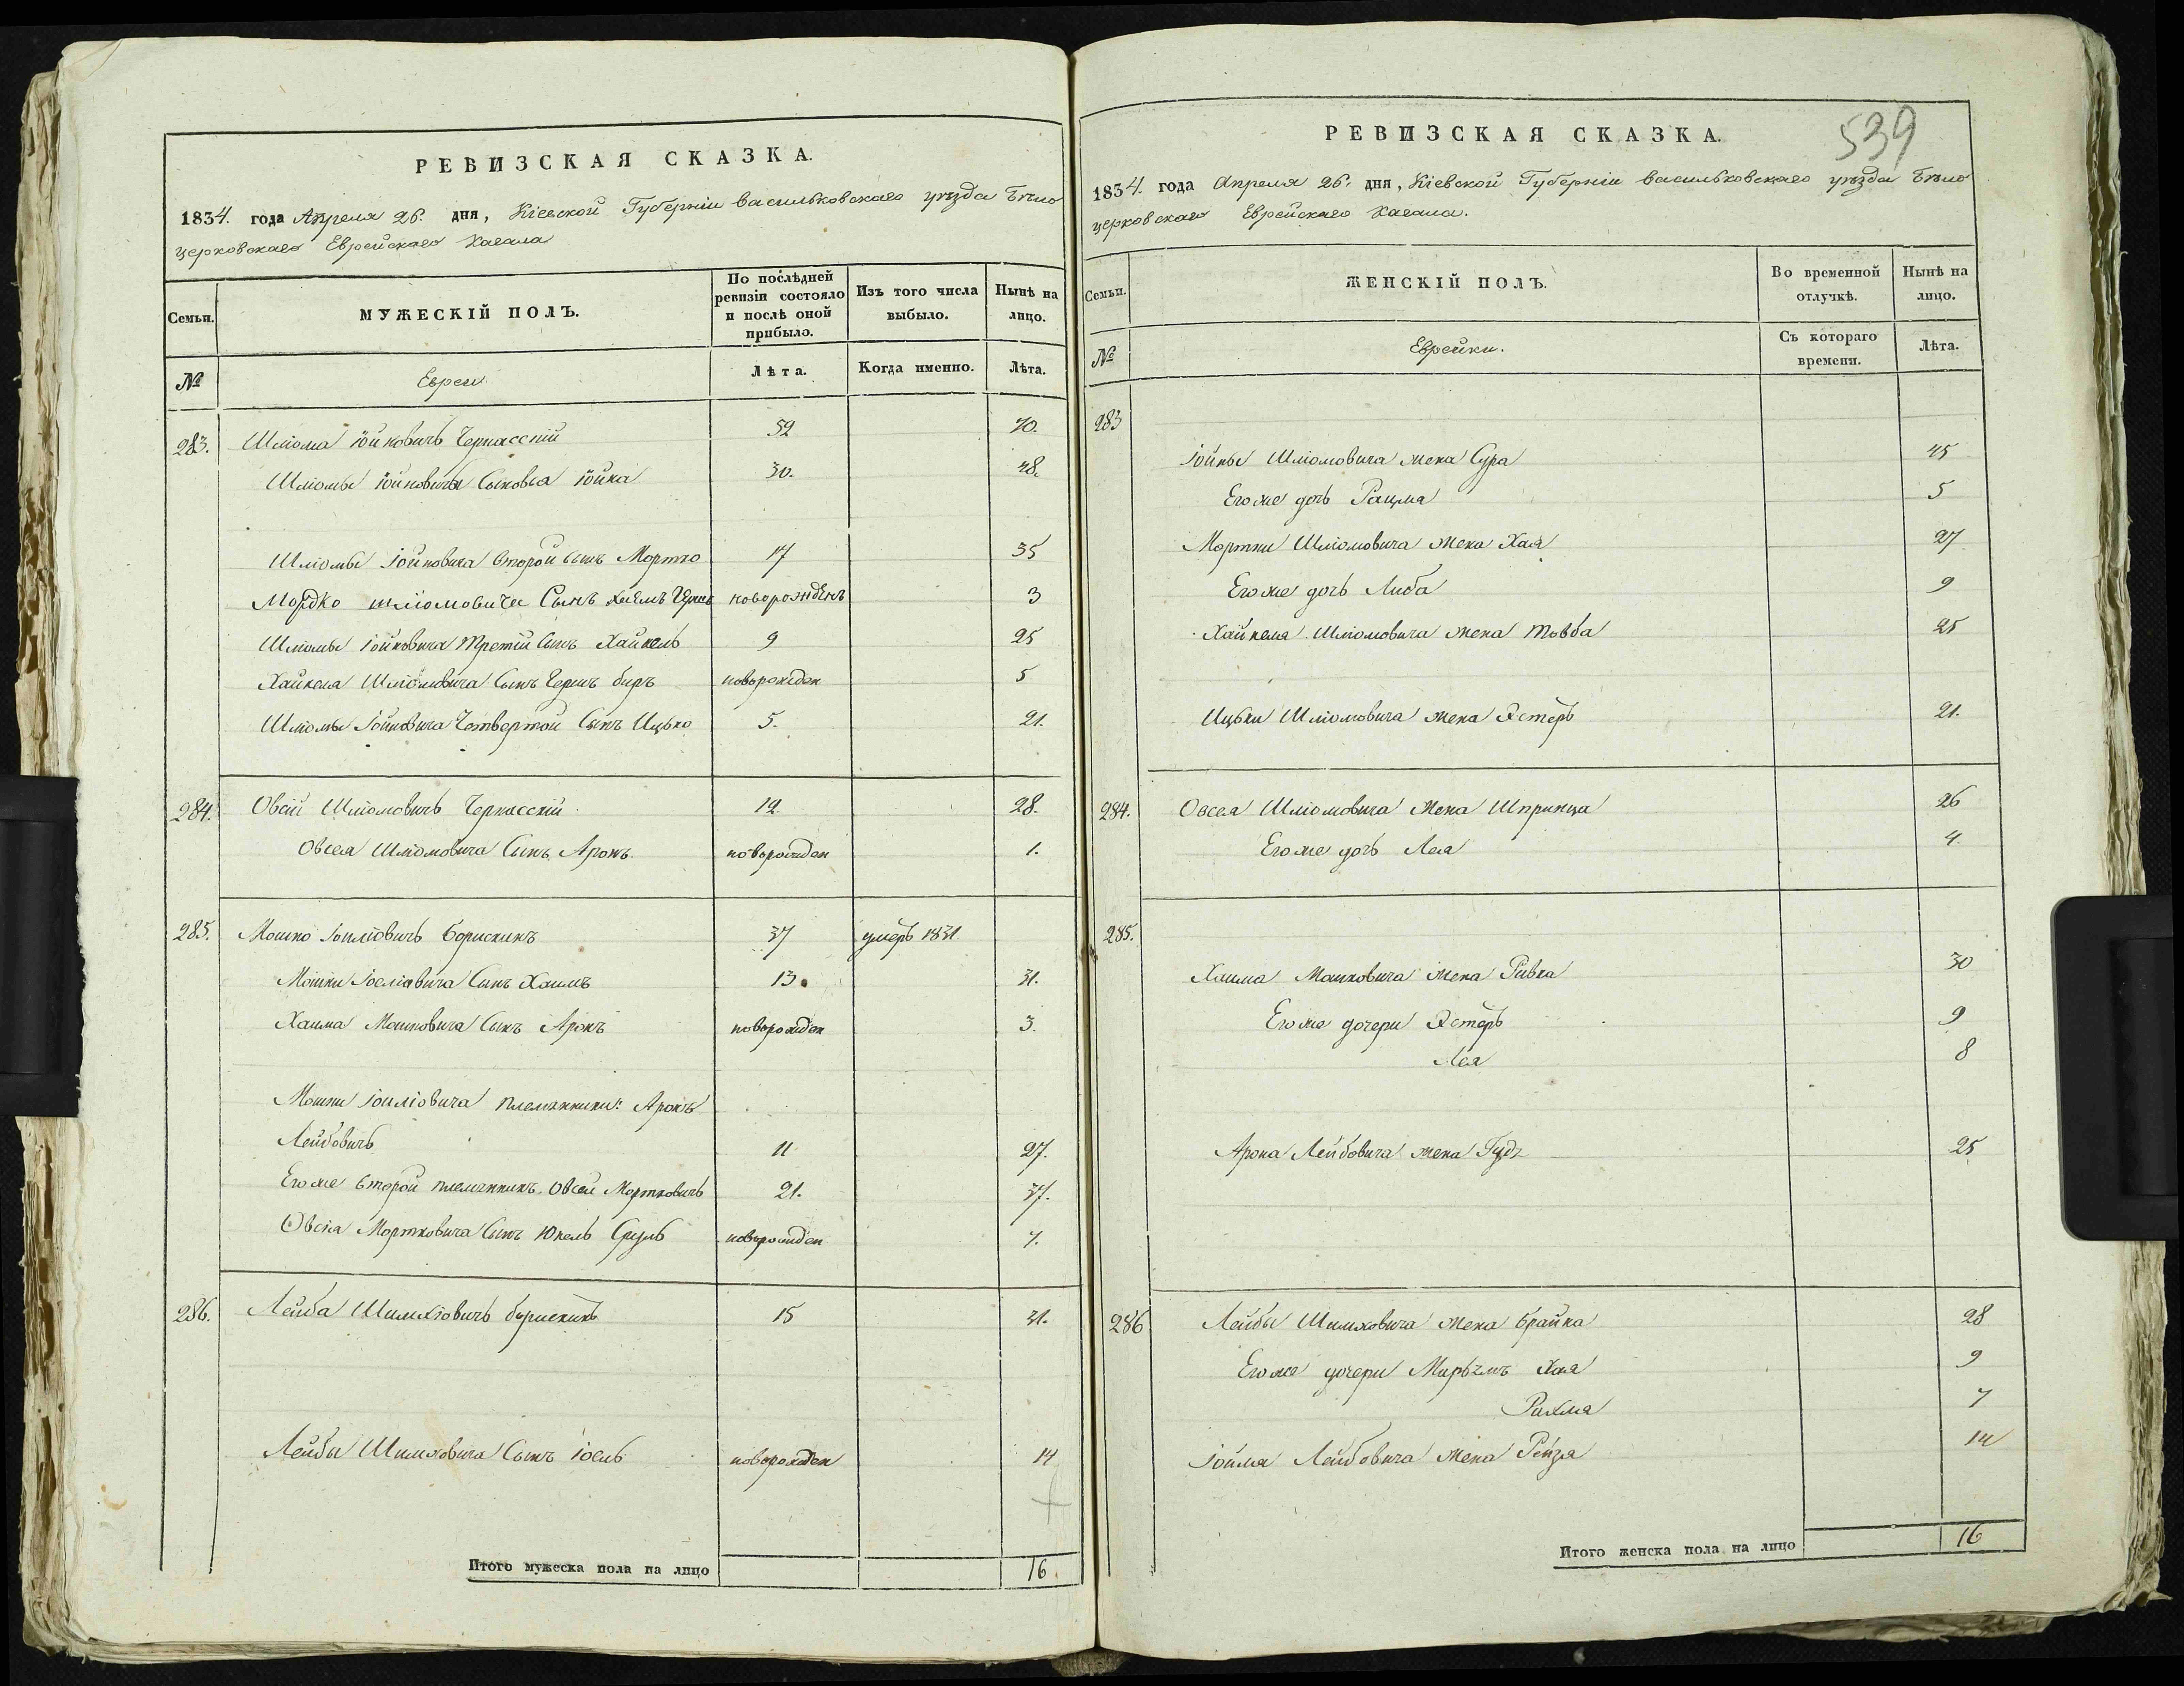 РЕВИЗСКАЯ СКАЗКА.
1834. года Апреля 26. дня, Кіевской Губерніи васильковскаго уѣзда Бѣло
церковскаго Еврейскаго Кагала
Семьи.
МУЖЕСКІЙ ПОЛЪ.
По послѣдней ревизіи состояло и послѣ оной прибыло.
Изъ того числа выбыло.
Нынѣ на лицо.
№
Евреи
Лѣта.
Когда именно.
Лѣта.
283. Шліома Іойковичъ Черкасскій 52 70.
Шліомы Іойковича Сыновья Іойна 30. 48.
Шліомы Іойковича второй сынъ Мортко 17 35
Мордко шліомовича Сынъ новорожденъ 3
Шліомы Іойковича третій Сынъ Хайкель 9 25
Хайкеля Шліомовича Сынъ Гершъ беръ новорожден 5
Шліомы Іойковича Четвертой Сынъ Ицько 5. 21.
284. Овсій Шліомовичъ Черкасскій 12. 28.
Овсея Шліомовича Сынъ Аронъ новорожден 1.
285. Мошко Іоиліовичъ Борискинъ 37 умеръ 1831.
Мошки Іоеліовича Сынъ Хаимъ 13. 31.
Хаима Мошковича Сынъ Аронъ новорожден 3.
Мошки Іоиліовича племянники: Аронъ
Лейбовичъ 11 27.
Егоже второй племянникъ Овсей Мортковичъ 21. 37.
Овсія Мортковича Сынъ Юкель Сруль новорожден 7.
286. Лейба Шимховичъ борискинъ 15 31.
Лейбы Шимховича Сынъ Іоель новорожден 14
Итого мужеска пола на лицо 16.
539
РЕВИЗСКАЯ СКАЗКА.
1834. года Апреля 26. дня, Кіевской Губерніи васильковскаго уѣзда Бѣло
церковскаго Еврейскаго Кагала.
Семьи.
ЖЕНСКІЙ ПОЛЪ.
Во временной отлучкѣ.
Нынѣ на лицо.
№
Еврейки.
Съ котораго времени.
Лѣта.
283
Іойны Шліомовича жена Сура 45
Егоже дочь 5
Мортки Шліомовича жена Хая 27
Егоже дочь Либа 9
Хайкеля Шліомовича жена Товба 25
Ицьки Шліомовича жена Эстеръ 21.
284. Овсея Шліомовича жена Шпринца 26
Егоже дочь Лея 4.
285.
Хаима Мошковича жена Ривка 30
Егоже дочери Эстеръ 9
Лея 8
Арона Лейбовича жена 25
286 Лейбы Шимховича жена Брайна 28
Егоже дочери Хая 9
Рахля 7
Іойля Лейбовича жена Рейза 14
Итого женска пола на лицо 16